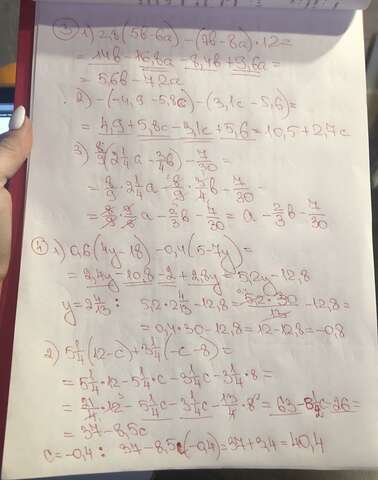 ③ 1) 2,8(5b-6a)-(7b-8a)·12=
= 14b-16,8a-8,4b+9,6a=
= 5,6b-7,2a
2) -(-4,9-5,8c)-(3,1c-5,6)=
= 4,9+5,8c-3,1c+5,6=10,5+2,7c
3) 8/9(2 1/4 a - 3/4 b) - 7/30 =
= 8/9 · 2 1/4 a - 8/9 · 3/4 b - 7/30 =
= 8/9 · 9/4 a - 2/3 b - 7/30 = a - 2/3 b - 7/30
④ 1) 0,6(4y-18)-0,4(5-7y)=
= 2,4y-10,8-2+2,8y=5,2y-12,8
y=2 4/13 : 5,2·2 4/13-12,8= 5,2·30/13 -12,8=
= 0,4·30-12,8=12-12,8=-0,8
2) 5 1/4(12-c)+3 1/4(-c-8)=
= 5 1/4·12-5 1/4c-3 1/4c-3 1/4·8=
= 21/4·12-5 1/4c-3 1/4c-13/4·8=63-8 1/2c-26=
= 37-8,5c
c=-0,4: 37-8,5·(-0,4)=37+3,4=40,4